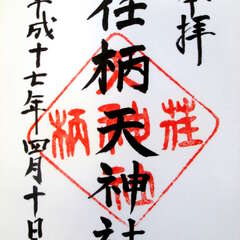 奉拝
荏柄天神社
平成十七年四月十日
荏柄